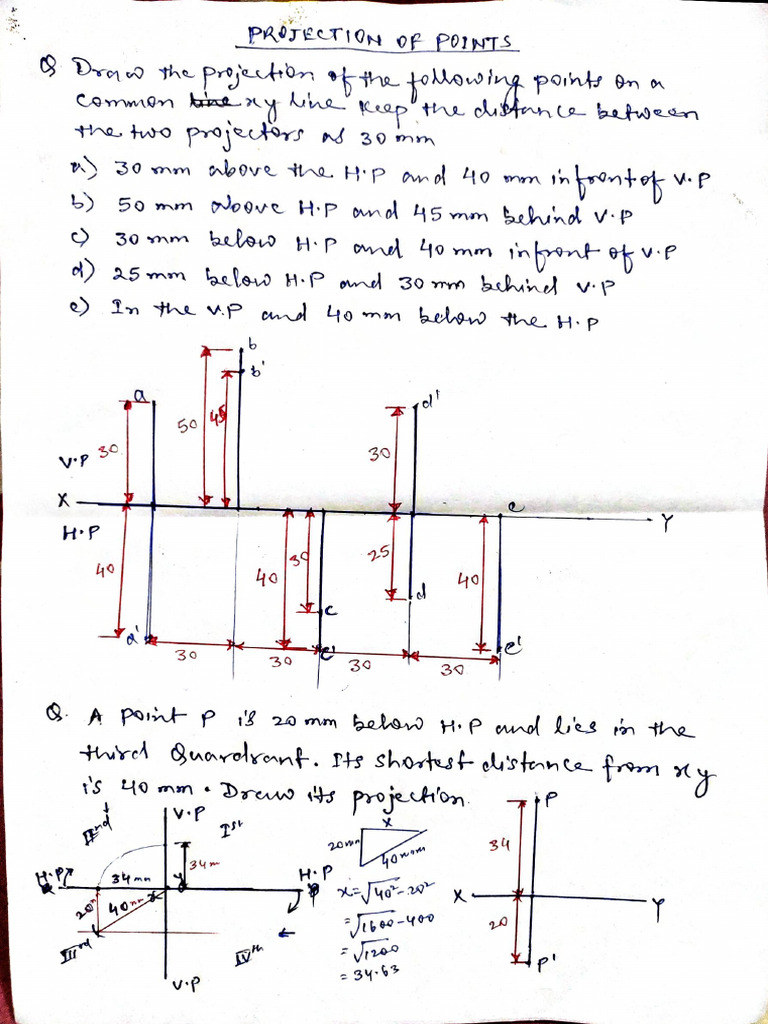 PROJECTION OF POINTS
Q Draw the projection of the following points on a
common line xy line keep the distance between
the two projectors as 30 mm
a) 30 mm above the H.P and 40 mm infront of V.P
b) 50 mm above H.P and 45 mm behind V.P
c) 30 mm below H.P and 40 mm infront of V.P
d) 25 mm below H.P and 30 mm behind V.P
e) In the V.P and 40 mm below the H.P
b
b'
a
d'
50
45
30
30
V.P
X
e
Y
H.P
40
40
30
25
40
c
d
a'
c'
e'
30
30
30
30
Q. A point P is 20 mm below H.P and lies in the
third Quardrant. Its shortest distance from xy
is 40 mm. Draw its projection.
IInd
V.P
Ist
34m
H.P
34mm
y
x
H.P
P
20m
40mm
IIIrd
IVth
V.P
x
20mm
40mm
x=√40²-20²
=√1600-400
=√1200
=34.63
P
34
X
Y
20
P'